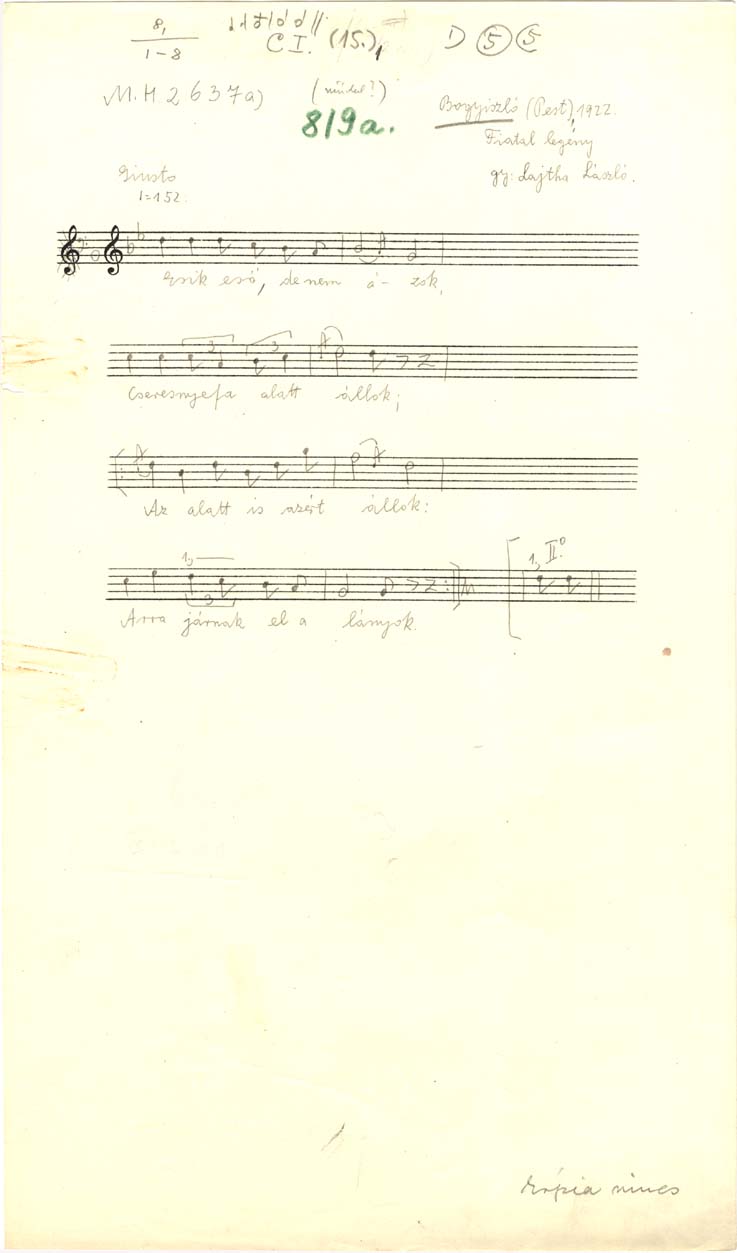 8,
1-8
C I. (15.),
D 5 5
M.H. 2637a)
(mindel?)
819a.
Bogyiszló (Pest), 1922.
Fiatal legény
gy: Lajtha László.
Giusto
=152.
Esik eső, de nem á- zok,
3 3
Cseresnyefa alatt állok;
Az alatt is azért állok:
1, II.º
1,
3
Arra járnak el a lányok.
Kópia nincs